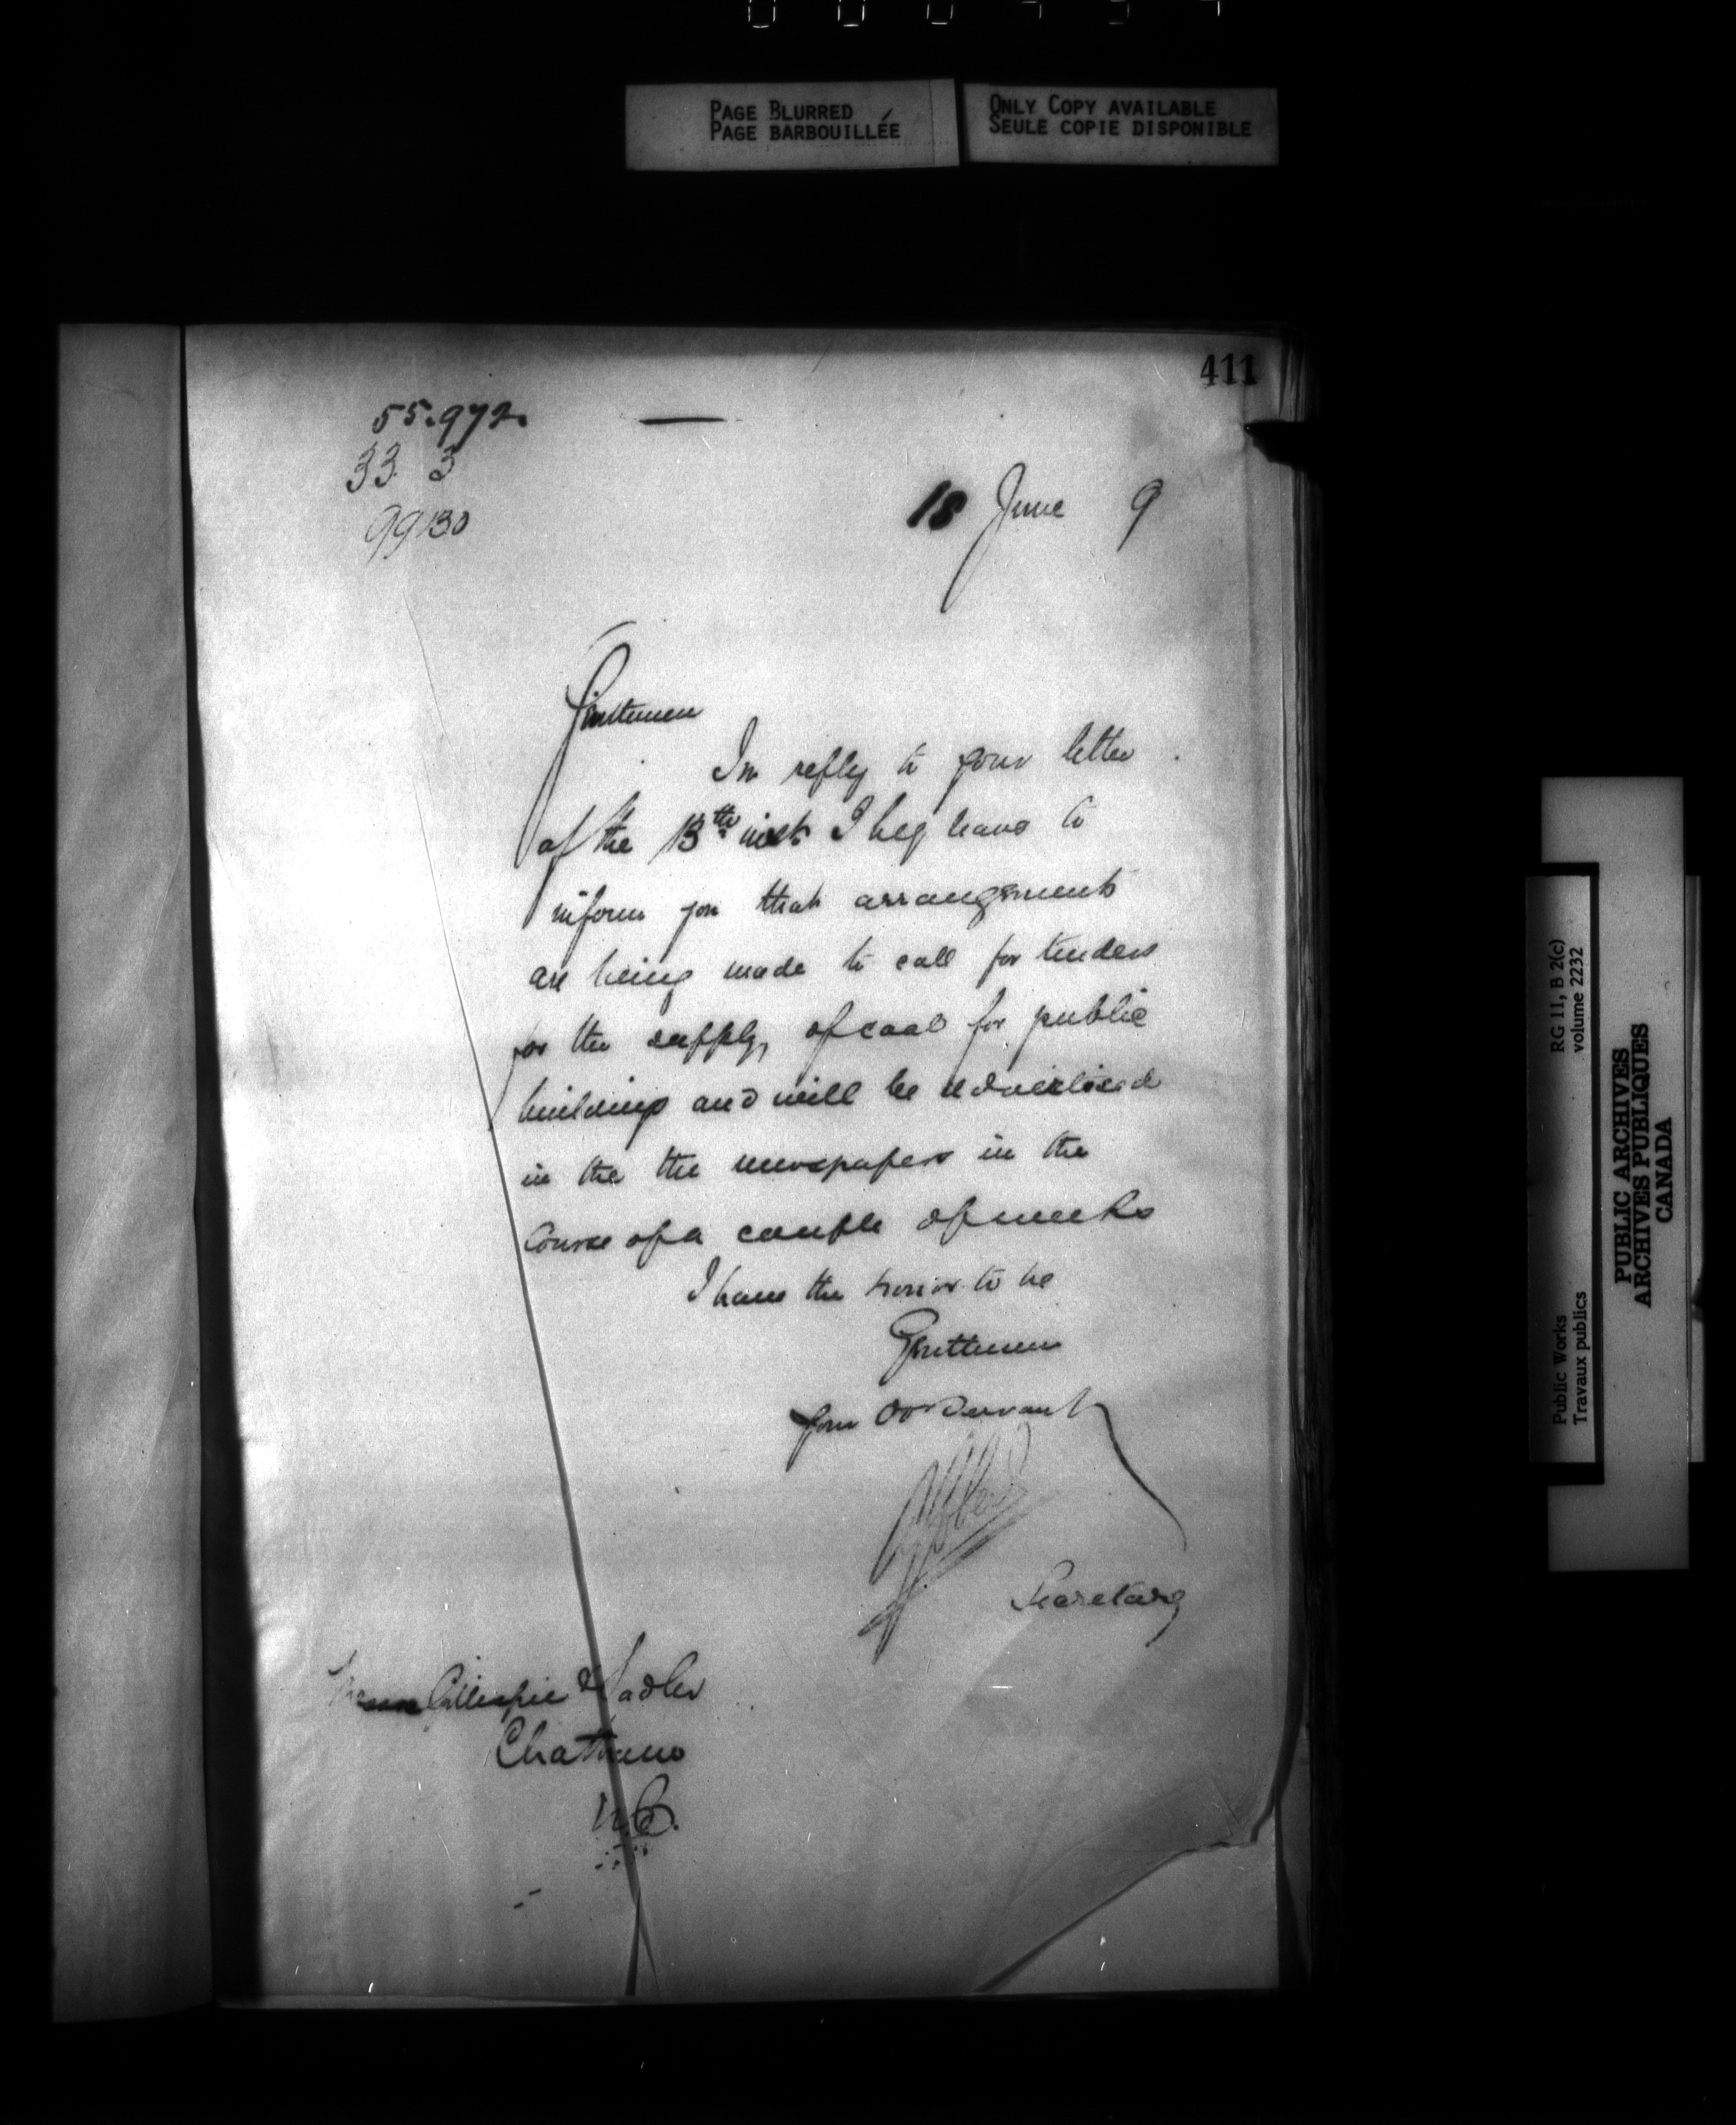 PAGE BLURRED
PAGE BARBOUILLÉE
ONLY COPY AVAILABLE
SEULE COPIE DISPONIBLE
411
55.972.
33 3
99130
18 June 9
Gentlemen
In reply to your letter
of the 13th inst I beg leave to
inform you that arrangements
are being made to call for tenders
for the supply of coal for public
buildings and will be advertised
in the the newspapers in the
Course of a couple of weeks
I have the honor to be
Gentlemen
Your Obt Servant
Secretary
Messrs Gillespie & Sadler
Chatham
N.B.
Public Works
Travaux publics
RG 11, B 2(c)
volume 2232
PUBLIC ARCHIVES
ARCHIVES PUBLIQUES
CANADA